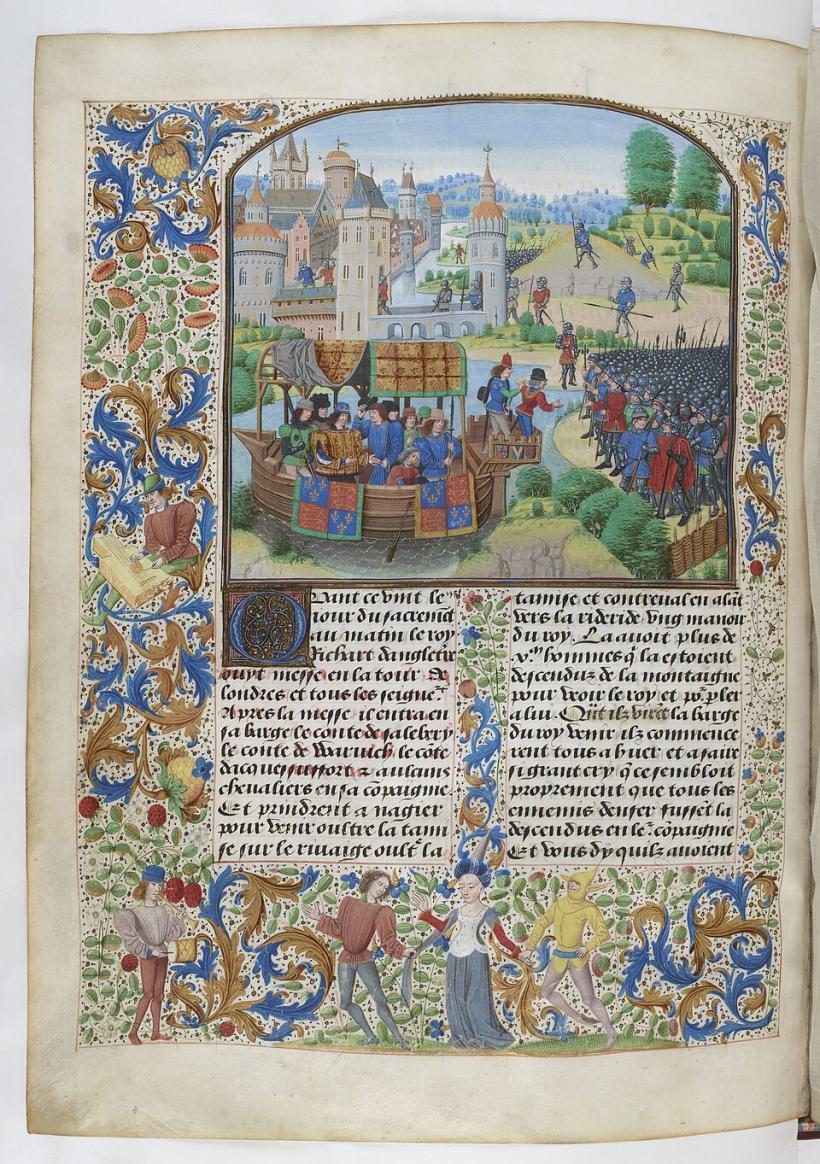 Quant ce vint le
iour du sacremēt
au matin le roy
Richart dangletre
ouyt messe en la tour de
londres et tous les seigneˢ
Apres la messe il entra en
sa barge le conte de salebery
le conte de Warvich le cōte
chevaliers en sa cōpaignie
Et prindrent a nagier
pour venir oultre la tami
se sur le rivaige oultˢ la
tamise et contreval en alāt
vers la rideride vng manoir
du roy. La avoit plus de
x.ᵐ hommes q̄ la estoient
descenduz de la montaigne
pour veoir le roy et po͛ pler
a lui. Qūt ilz virēt la barge
du roy venir ilz commence
rent tous a huer et a faire
si grant cry q̄ ce sembloit
proprement que tous les
ennemis denfer fussēt la
descendus en leˢ cōpaignie
Et vous dy quilz avoient